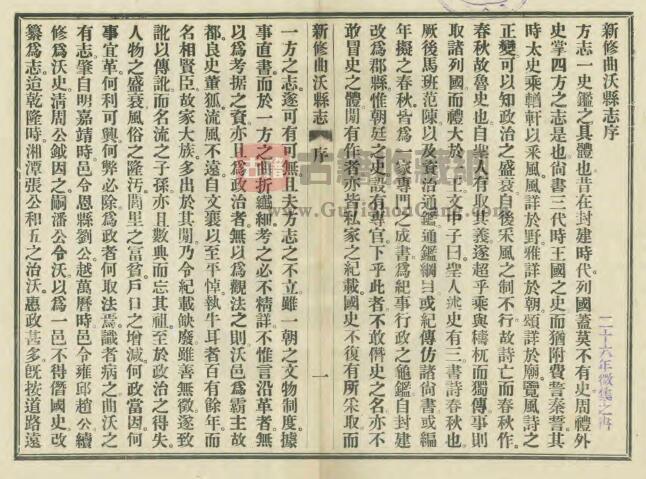 新修曲沃縣志序
方志一史鑑之具體也昔在封建時代列國蓋莫不有史周禮外
史掌四方之志是也尙書三代時王國之史而猶附費誓秦誓其
時太史乘輶軒以采風風詳於野雅詳於朝頌詳於廟覽風詩之
正變可以知政治之盛衰自後采風之制不行故詩亡而春秋作
春秋故魯史也自聖人有取其義遂超乎乘與檮杌而獨傳事則
取諸列國而禮大於一王文中子曰聖人述史有三書詩春秋也
厥後馬班范陳以及資治通鑑通鑑綱目或紀傳仿諸尙書或編
年擬之春秋皆為專門之成書為紀事行政之龜鑑自封建
改為郡縣惟朝廷之史設有專官下乎此者不敢僭史之名亦不
敢冒史之體閒有作者亦皆私家之紀載國史不復有所采取而
新修曲沃縣志
序
一
一方之志遂可有可無且夫方志之不立雖一朝之文物制度據
事直書而於一方之折纖細考之必不精詳不惟言沿革者無
以為考据之資亦且為政治者無以為觀法之則沃邑為霸主故
都良史董狐流風不遠自文襄以至平悼執牛耳者百有餘年而
名相賢臣故家大族多出於其閒乃令紀載缺廢雖善無徵遂致
訛以傳訛而名流之子孫亦且數典而忘其祖至於政治之得失
人物之盛衰風俗之隆污閭里之富貧戶口之增減何政當因何
事宜革何利可興何弊必除為政者何取法焉識者病之曲沃之
有志肇自明嘉靖時邑令恩縣劉公越萬曆時邑令雍邱趙公續
修為沃史淸周公鉞因之嗣潘公令沃以為一邑不得僭國史改
纂為志迨乾隆時湘潭張公和五之治沃惠政甚多旣按道路遠
二十六年徵集之冊
古籍收藏郎
www.GuJiShouCang.com